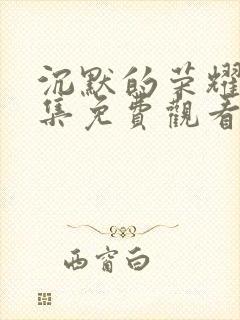 沉默的荣耀
集免費觀看
西窗白